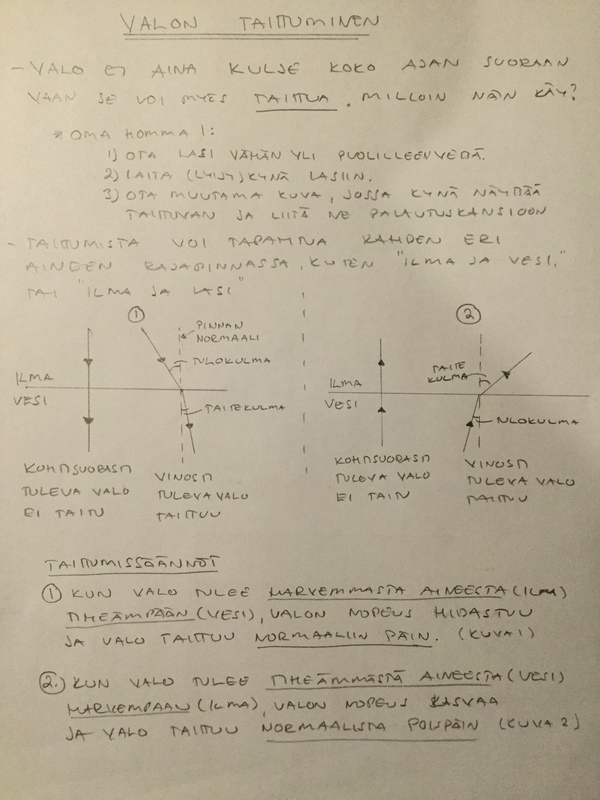 VALON TAITTUMINEN
- VALO EI AINA KULJE KOKO AJAN SUORAAN
VAAN SE VOI MYÖS TAITTUA. MILLOIN NÄIN KÄY?
* OMA HOMMA 1:
1) OTA LASI VÄHÄN YLI PUOLILLEEN VETTÄ.
2) LAITA (LYIJY)KYNÄ LASIIN.
3) OTA MUUTAMA KUVA, JOSSA KYNÄ NÄYTTÄÄ
TAITTUVAN JA LIITÄ NE PALAUTUSKANSIOON
- TAITTUMISTA VOI TAPAHTUA KAHDEN ERI
AINEEN RAJAPINNASSA, KUTEN "ILMA JA VESI,"
TAI "ILMA JA LASI"
1
PINNAN
NORMAALI
TULOKULMA
ILMA
VESI
TAITEKULMA
KOHTISUORASTI
TULEVA VALO
EI TAITU
VINOSTI
TULEVA VALO
TAITTUU
2
TAITE
KULMA
ILMA
VESI
TULOKULMA
KOHTISUORASTI
TULEVA VALO
EI TAITU
VINOSTI
TULEVA VALO
TAITTUU
TAITTUMISSÄÄNNÖT
1 KUN VALO TULEE HARVEMMASTA AINEESTA (ILMA)
TIHEÄMPÄÄN (VESI), VALON NOPEUS HIDASTUU
JA VALO TAITTUU NORMAALIIN PÄIN. (KUVA 1)
2. KUN VALO TULEE TIHEÄMMÄSTÄ AINEESTA (VESI)
HARVEMPAAN (ILMA), VALON NOPEUS KASVAA
JA VALO TAITTUU NORMAALISTA POISPÄIN (KUVA 2)